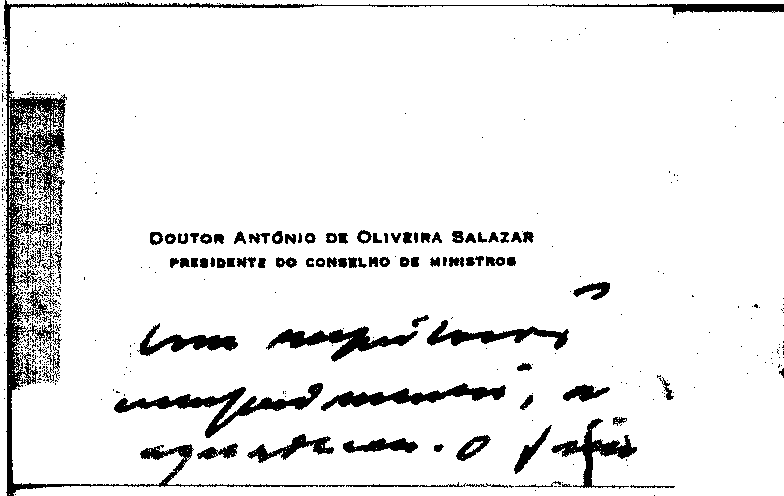 DOUTOR ANTÓNIO DE OLIVEIRA SALAZAR
PRESIDENTE DO CONSELHO DE MINISTROS
com respeitosos
cumprimentos, a
agradecer. O